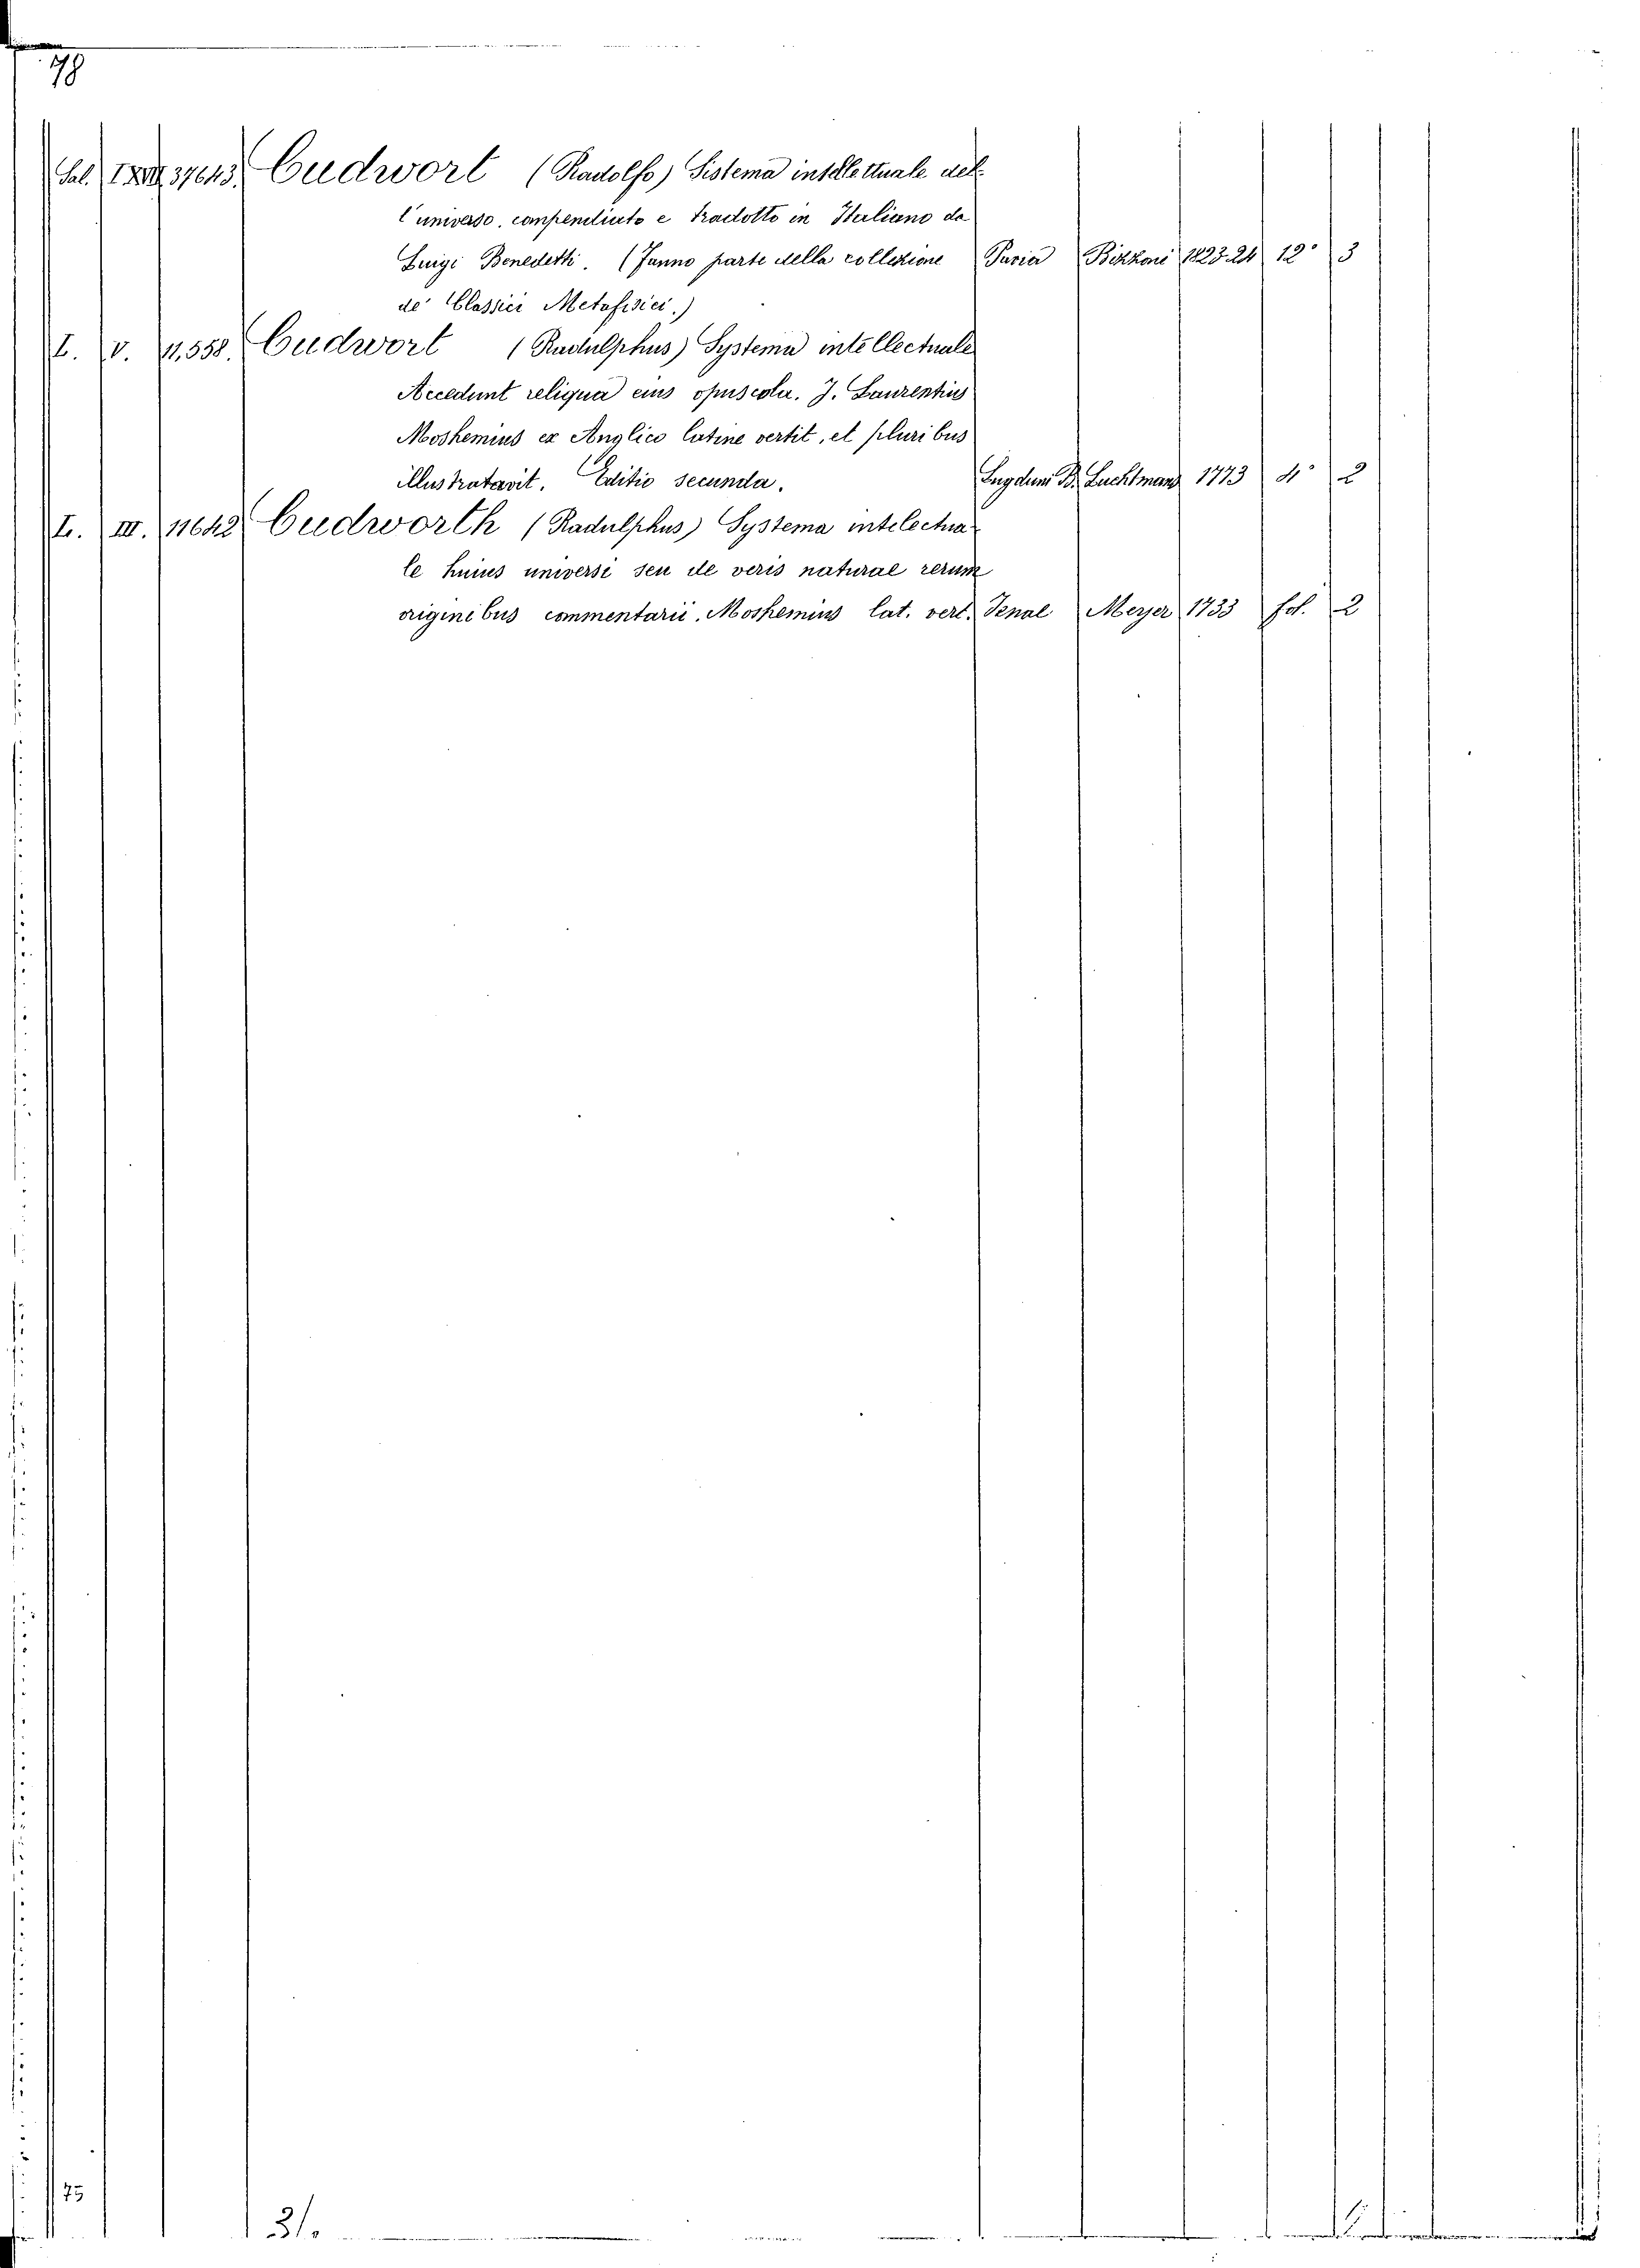 78
Sal. I XVII 37643. Cudwort (Radolfo) Sistema intellettuale del
l'universo. compendiato e tradotto in Italiano da
Luigi Benedetti. (Fanno parte della collezione Pavia Bizzoni 1823-24 12° 3
de' Classici Metafisici.)
I. V. 11,558. Cudwort (Radulphus) Systema intellectuale
Accedunt reliqua eius opuscola. J. Laurentius
Moshemius ex Anglico latine vertit, et pluribus
illustratavit. Editio secunda. Lugduni B. Luchtmans 1773 4° 2
I. III. 11642 Cudworth (Radulphus) Systema intelectua
le huius universi seu de veris natural rerum
originibus commentarii. Moshemius lat. vert. Jenae Meyer 1733 fol. 2
75
31.